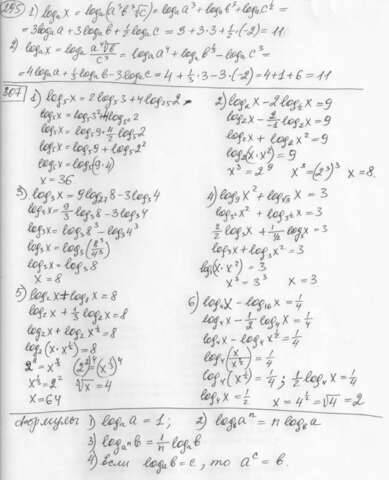 295 1) logₐx = logₐ(a³b³√c) = logₐa³ + logₐb³ + logₐc^½ =
= 3logₐa + 3logₐb + ½logₐc = 3 + 3·3 + ½·(-2) = 11
2) logₐx = logₐ (a⁴∛b / c³) = logₐa⁴ + logₐb^⅓ - logₐc³ =
= 4logₐa + ⅓logₐb - 3logₐc = 4 + ⅓·3 - 3·(-2) = 4+1+6 = 11
307
1) log₅x = 2log₅3 + 4log₂₅2
log₅x = log₅3² + 4log₅²2
log₅x = log₅9 + 4/2 log₅2
log₅x = log₅9 + log₅2²
log₅x = log₅(9·4)
x = 36
2) log₂x - 2log_½x = 9
log₂x - 2/-1 log₂x = 9
log₂x + log₂x² = 9
log₂(x·x²) = 9
x³ = 2⁹ x³ = (2³)³ x = 8.
3) log₃x = 9log₂₇8 - 3log₃4
log₃x = 9/3 log₃8 - 3log₃4
log₃x = log₃8³ - log₃4³
log₃x = log₃(8³/4³)
log₃x = log₃8
x = 8
4) log₉x² + log_√3 x = 3
log₃²x² + log₃^½ x = 3
2/2 log₃x + 1/½ log₃x = 3
log₃x + log₃x² = 3
log₃(x·x²) = 3
x³ = 3³ x = 3
5) log₂x + log₈x = 8
log₂x + ⅓log₂x = 8
log₂x + log₂x^⅓ = 8
log₂(x·x^⅓) = 8
2⁸ = x^4/3 (2²)⁴ = (x^⅓)⁴
x^⅓ = 2² ∛x = 4
x = 64
6) log₄x - log₁₆x = ¼
log₄x - ½log₄x = ¼
log₄x - log₄x^½ = ¼
log₄(x/x^½) = ¼
log₄(x^½) = ¼; ½log₄x = ¼
log₄x = ½ x = 4^½ = √4 = 2
Формулы 1) logₐa = 1; 2) logₐaⁿ = n logₐa
3) logₐⁿb = 1/n logₐb
4) Если logₐb = c, то aᶜ = b.